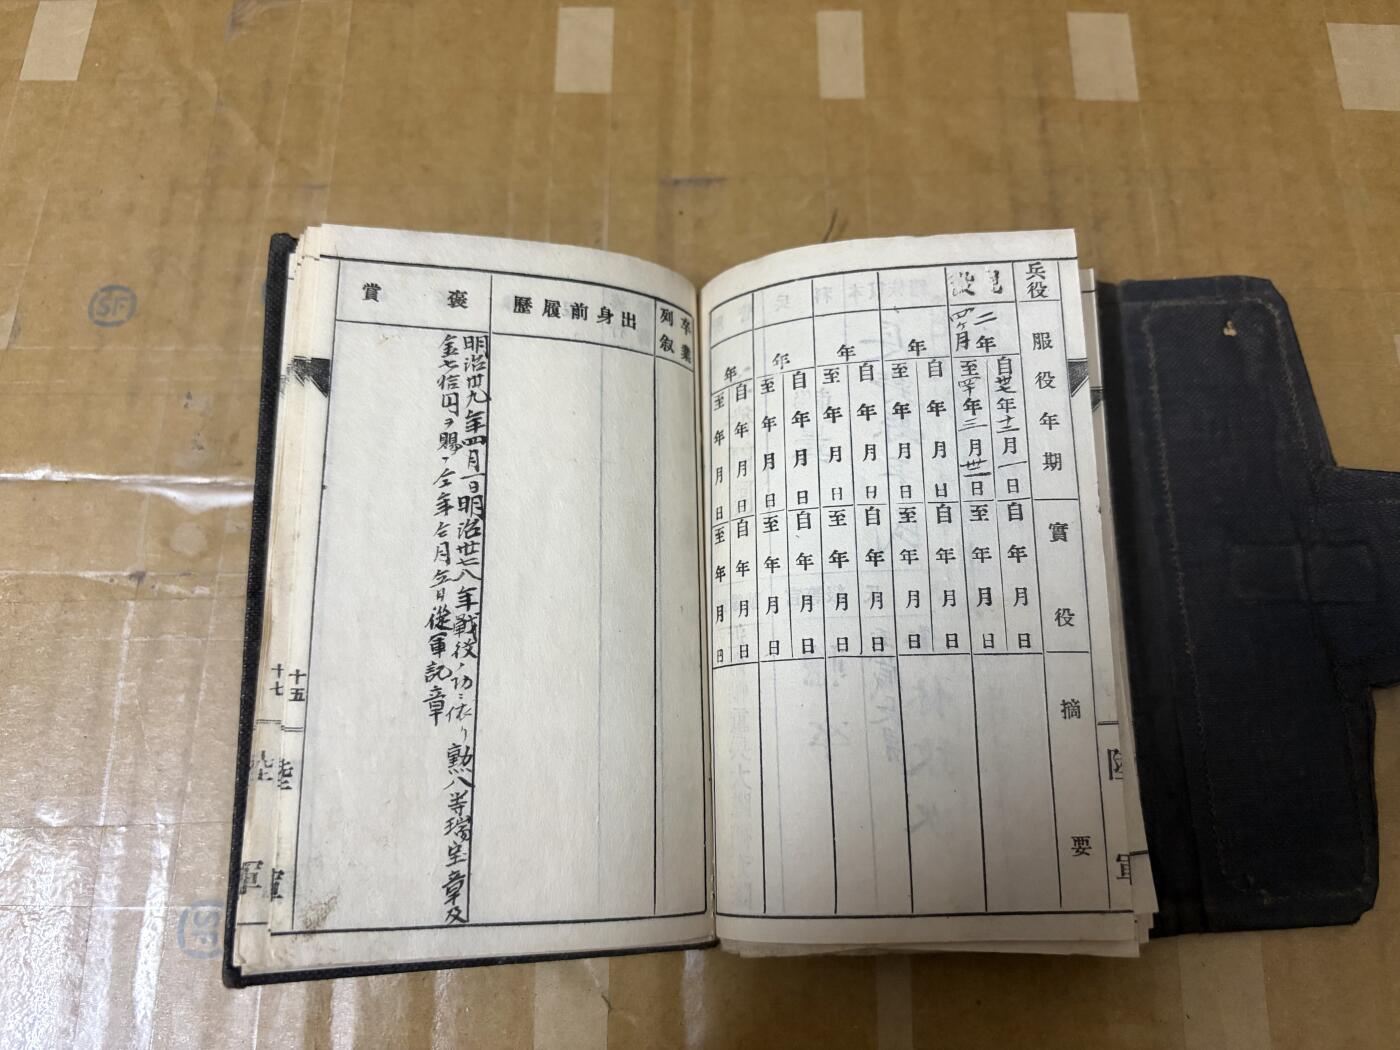 兵役
服役年期
實役
摘要
現役
二年四ケ月
自卅七年十二月一日
至四十年三月卅一日
自 年 月 日
至 年 月 日
年
自 年 月 日
至 年 月 日
自 年 月 日
至 年 月 日
年
自 年 月 日
至 年 月 日
自 年 月 日
至 年 月 日
年
自 年 月 日
至 年 月 日
自 年 月 日
至 年 月 日
年
自 年 月 日
至 年 月 日
自 年 月 日
至 年 月 日
卒業列敘
出身前履歷
褒賞
明治卅九年四月一日明治卅七八年戰役ノ功ニ依リ勲八等瑞宝章及
金七拾円ヲ賜フ 仝年仝月仝日從軍記章
十五
十七
陸軍
陸軍
陸軍
SF